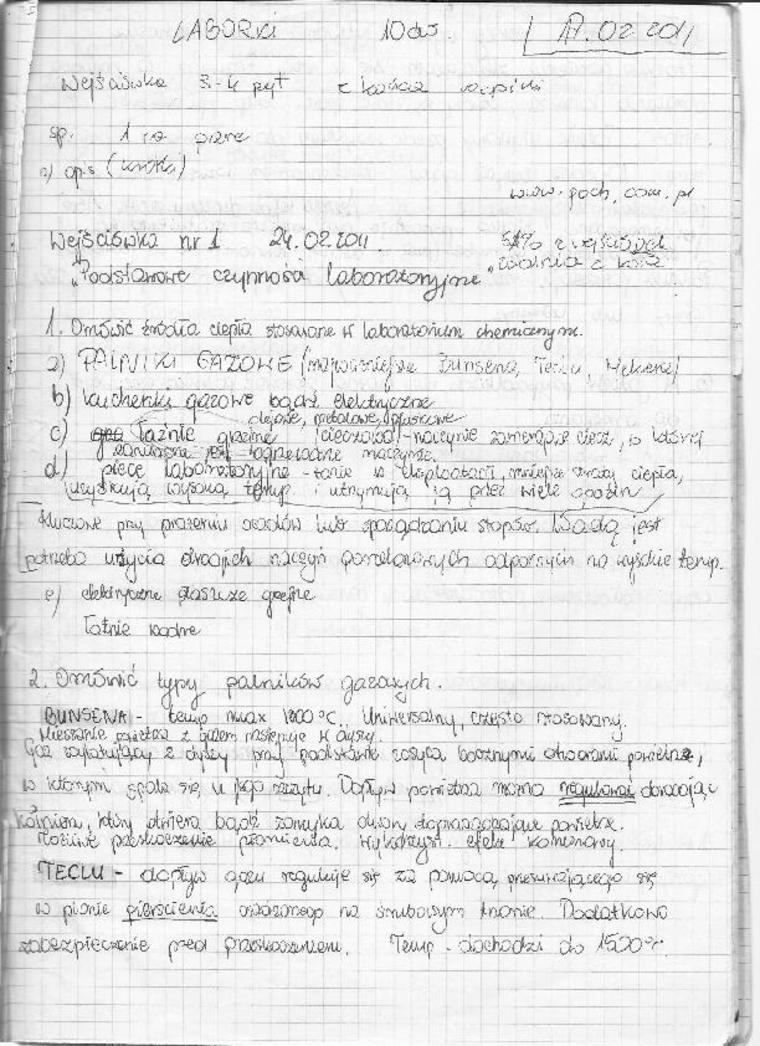 LABORKI 10 17.02.2011
Wejściówka 3-4 pyt z końca
sp. 1 na
a) opis (krótki)
www.poch.com.pl
Wejściówka nr 1 24.02.2011. 51% z wejściówek
"Podstawowe czynności laboratoryjne" zwalnia z
1. Omówić źródła ciepła stosowane w laboratorium chemicznym.
a) PALNIKI GAZOWE (najważniejsze Bunsena, Teclu, Mekera)
b) kuchenki gazowe bądź elektryczne
olejowe, metalowe, piaskowe
c) łaźnie grzejne (cieczowe) - naczynie zawierające ciecz, w której
zanurzone jest ogrzewane naczynie.
d) piece laboratoryjne - tanie w eksploatacji, mniejsze straty ciepła,
uzyskują wysoką temp i utrzymują ją przez wiele godzin
Kluczowe przy prażeniu osadów lub sporządzaniu stopów. Wadą jest
potrzeba użycia drogich naczyń porcelanowych odpornych na wysokie temp.
e) elektryczne płaszcze grzejne
łaźnie wodne
2. Omówić typy palników gazowych.
BUNSENA - temp max °C. Uniwersalny, często stosowany.
Mieszanie powietrza z gazem następuje w dyszy.
Gaz wylatujący z dyszy przy podstawie zasysa bocznymi otworami powietrze,
w którym spala się u jego szczytu. Dopływ powietrza można regulować obracając
kołnierz, który otwiera bądź zamyka otwory doprowadzające powietrze.
Możliwe przeskoczenie płomienia. Wykorzyst. efekt kominowy.
TECLU - dopływ gazu reguluje się za pomocą przesuwającego się
w pionie pierścienia osadzonego na śrubowym trzonie. Dodatkowo
zabezpieczenie przed przeskoczeniem. Temp - dochodzi do 1500°C.